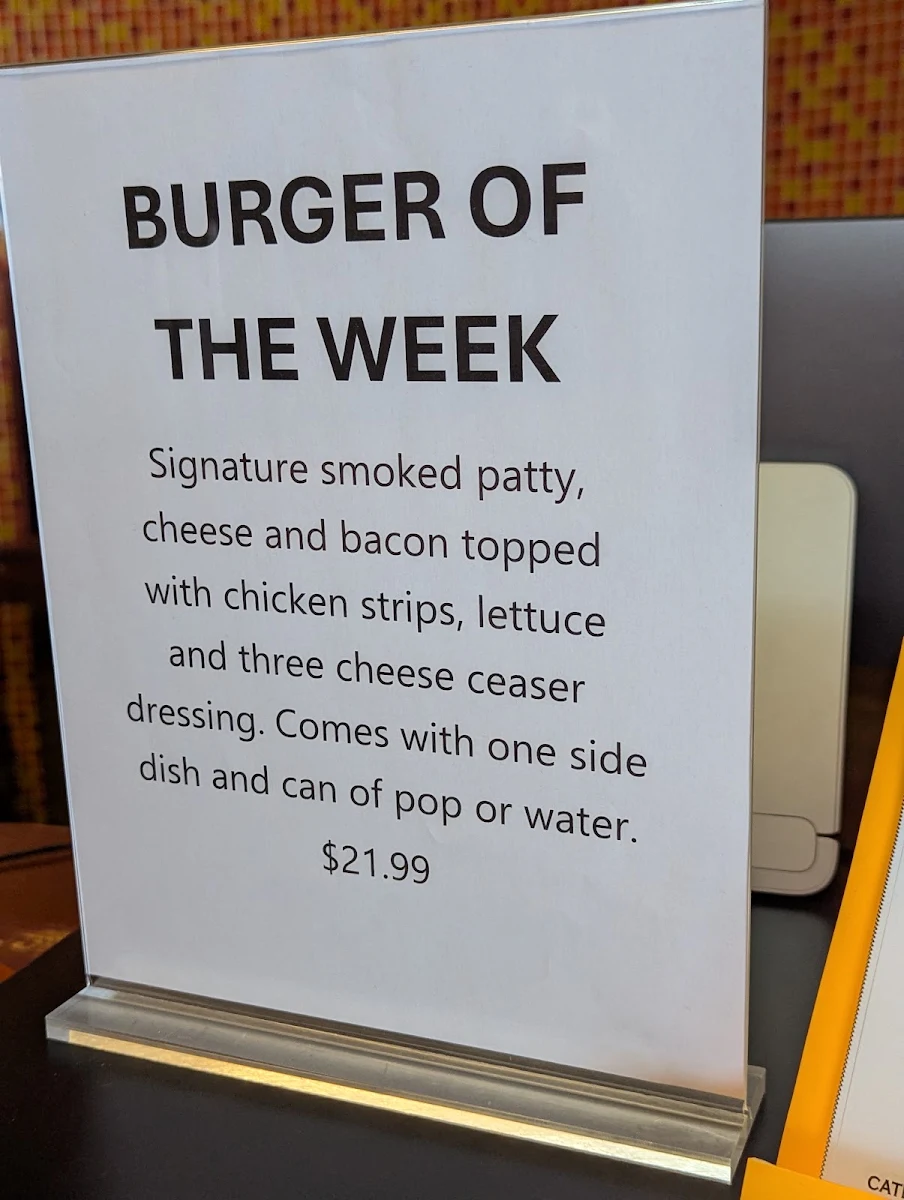 BURGER OF
THE WEEK
Signature smoked patty,
cheese and bacon topped
with chicken strips, lettuce
and three cheese ceaser
dressing. Comes with one side
dish and can of pop or water.
$21.99